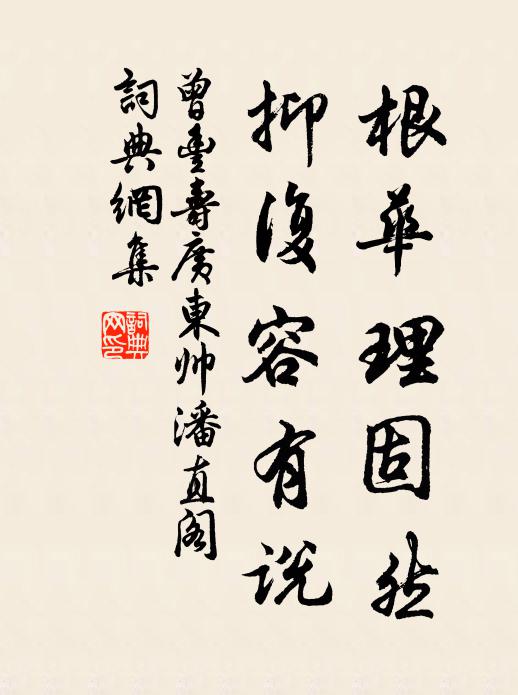 根華理固然
抑復容有說
曾豐壽廣東帥潘直閣
詞典網集
詞典
网印